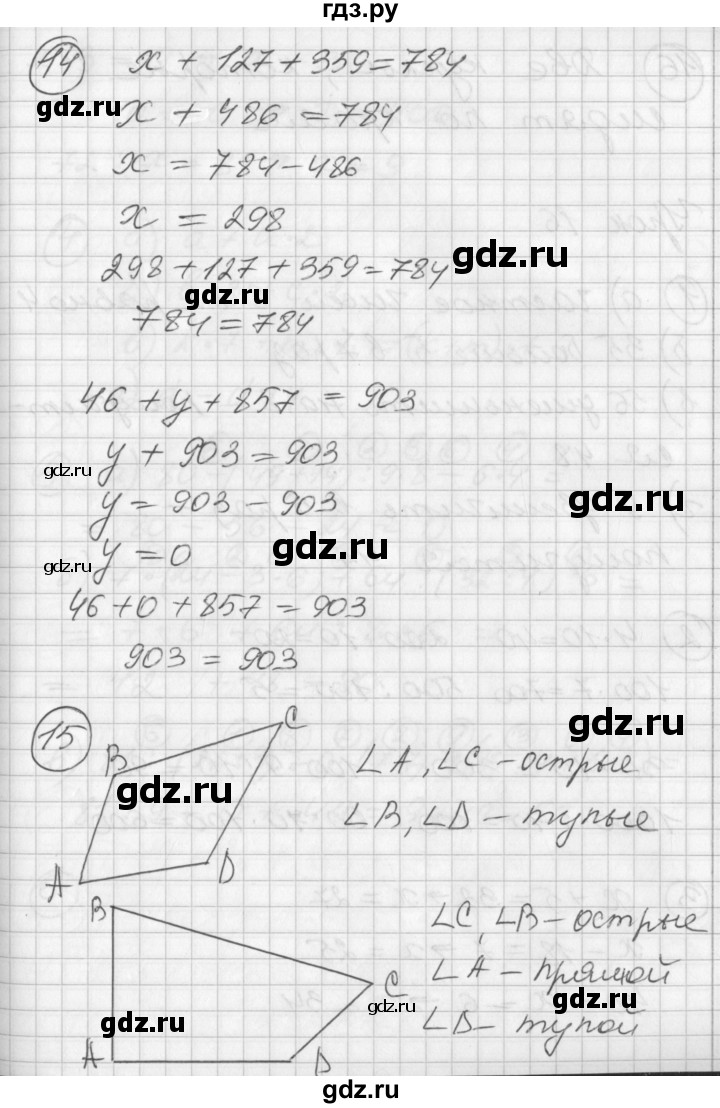 гдз.ру
14 x + 127 + 359 = 784
gdz.ru
x + 486 = 784
x = 784 - 486
x = 298
gdz.ru
298 + 127 + 359 = 784
gdz.ru
784 = 784
46 + y + 857 = 903
y + 903 = 903
gdz.ru
y = 903 - 903
gdz.ru
y = 0
gdz.ru
gdz.ru
46 + 0 + 857 = 903
903 = 903
15
gdz.ru
B C
∠A, ∠C - острые
gdz.ru
∠B, ∠D - тупые
A D
B
∠C, ∠B - острые
∠A - прямой
C
gdz.ru
gdz.ru
∠D - тупой
gdz.ru
A D
gdz.ru